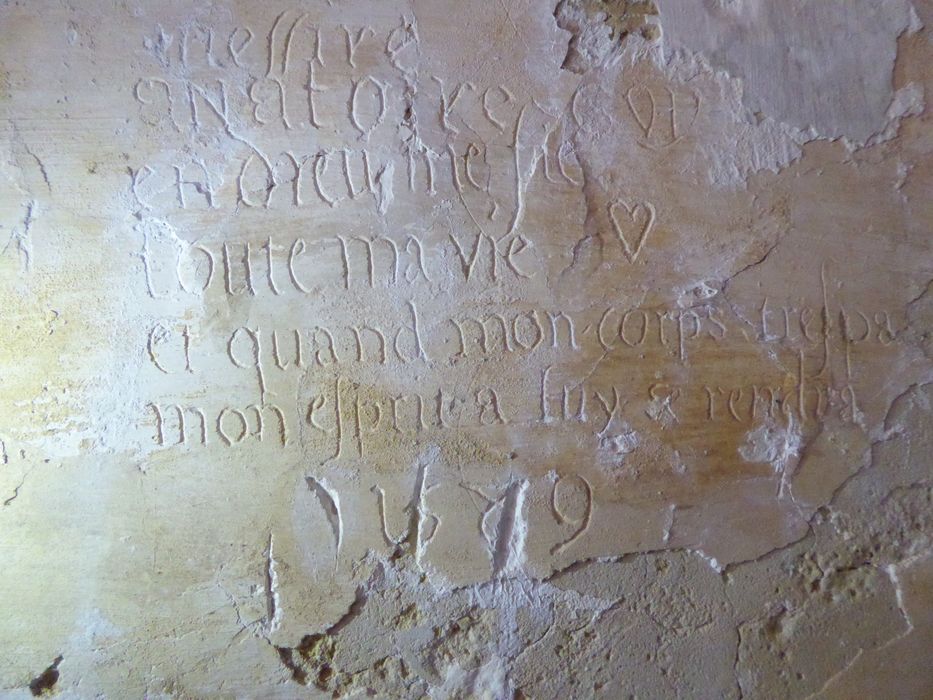 Messire
anatoire
en dieu me fie
toute ma vie ♡
et quand mon corps trespa
mon esprit a luy se rendra